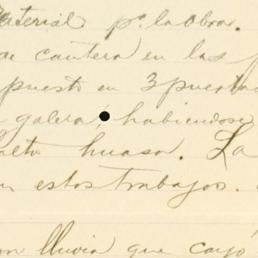 Material pa. la Obra.
de cantera en las
puesto en 3 puertas
galera, habiendose
huaso. La
en estos trabajos.
lluvia que cayó